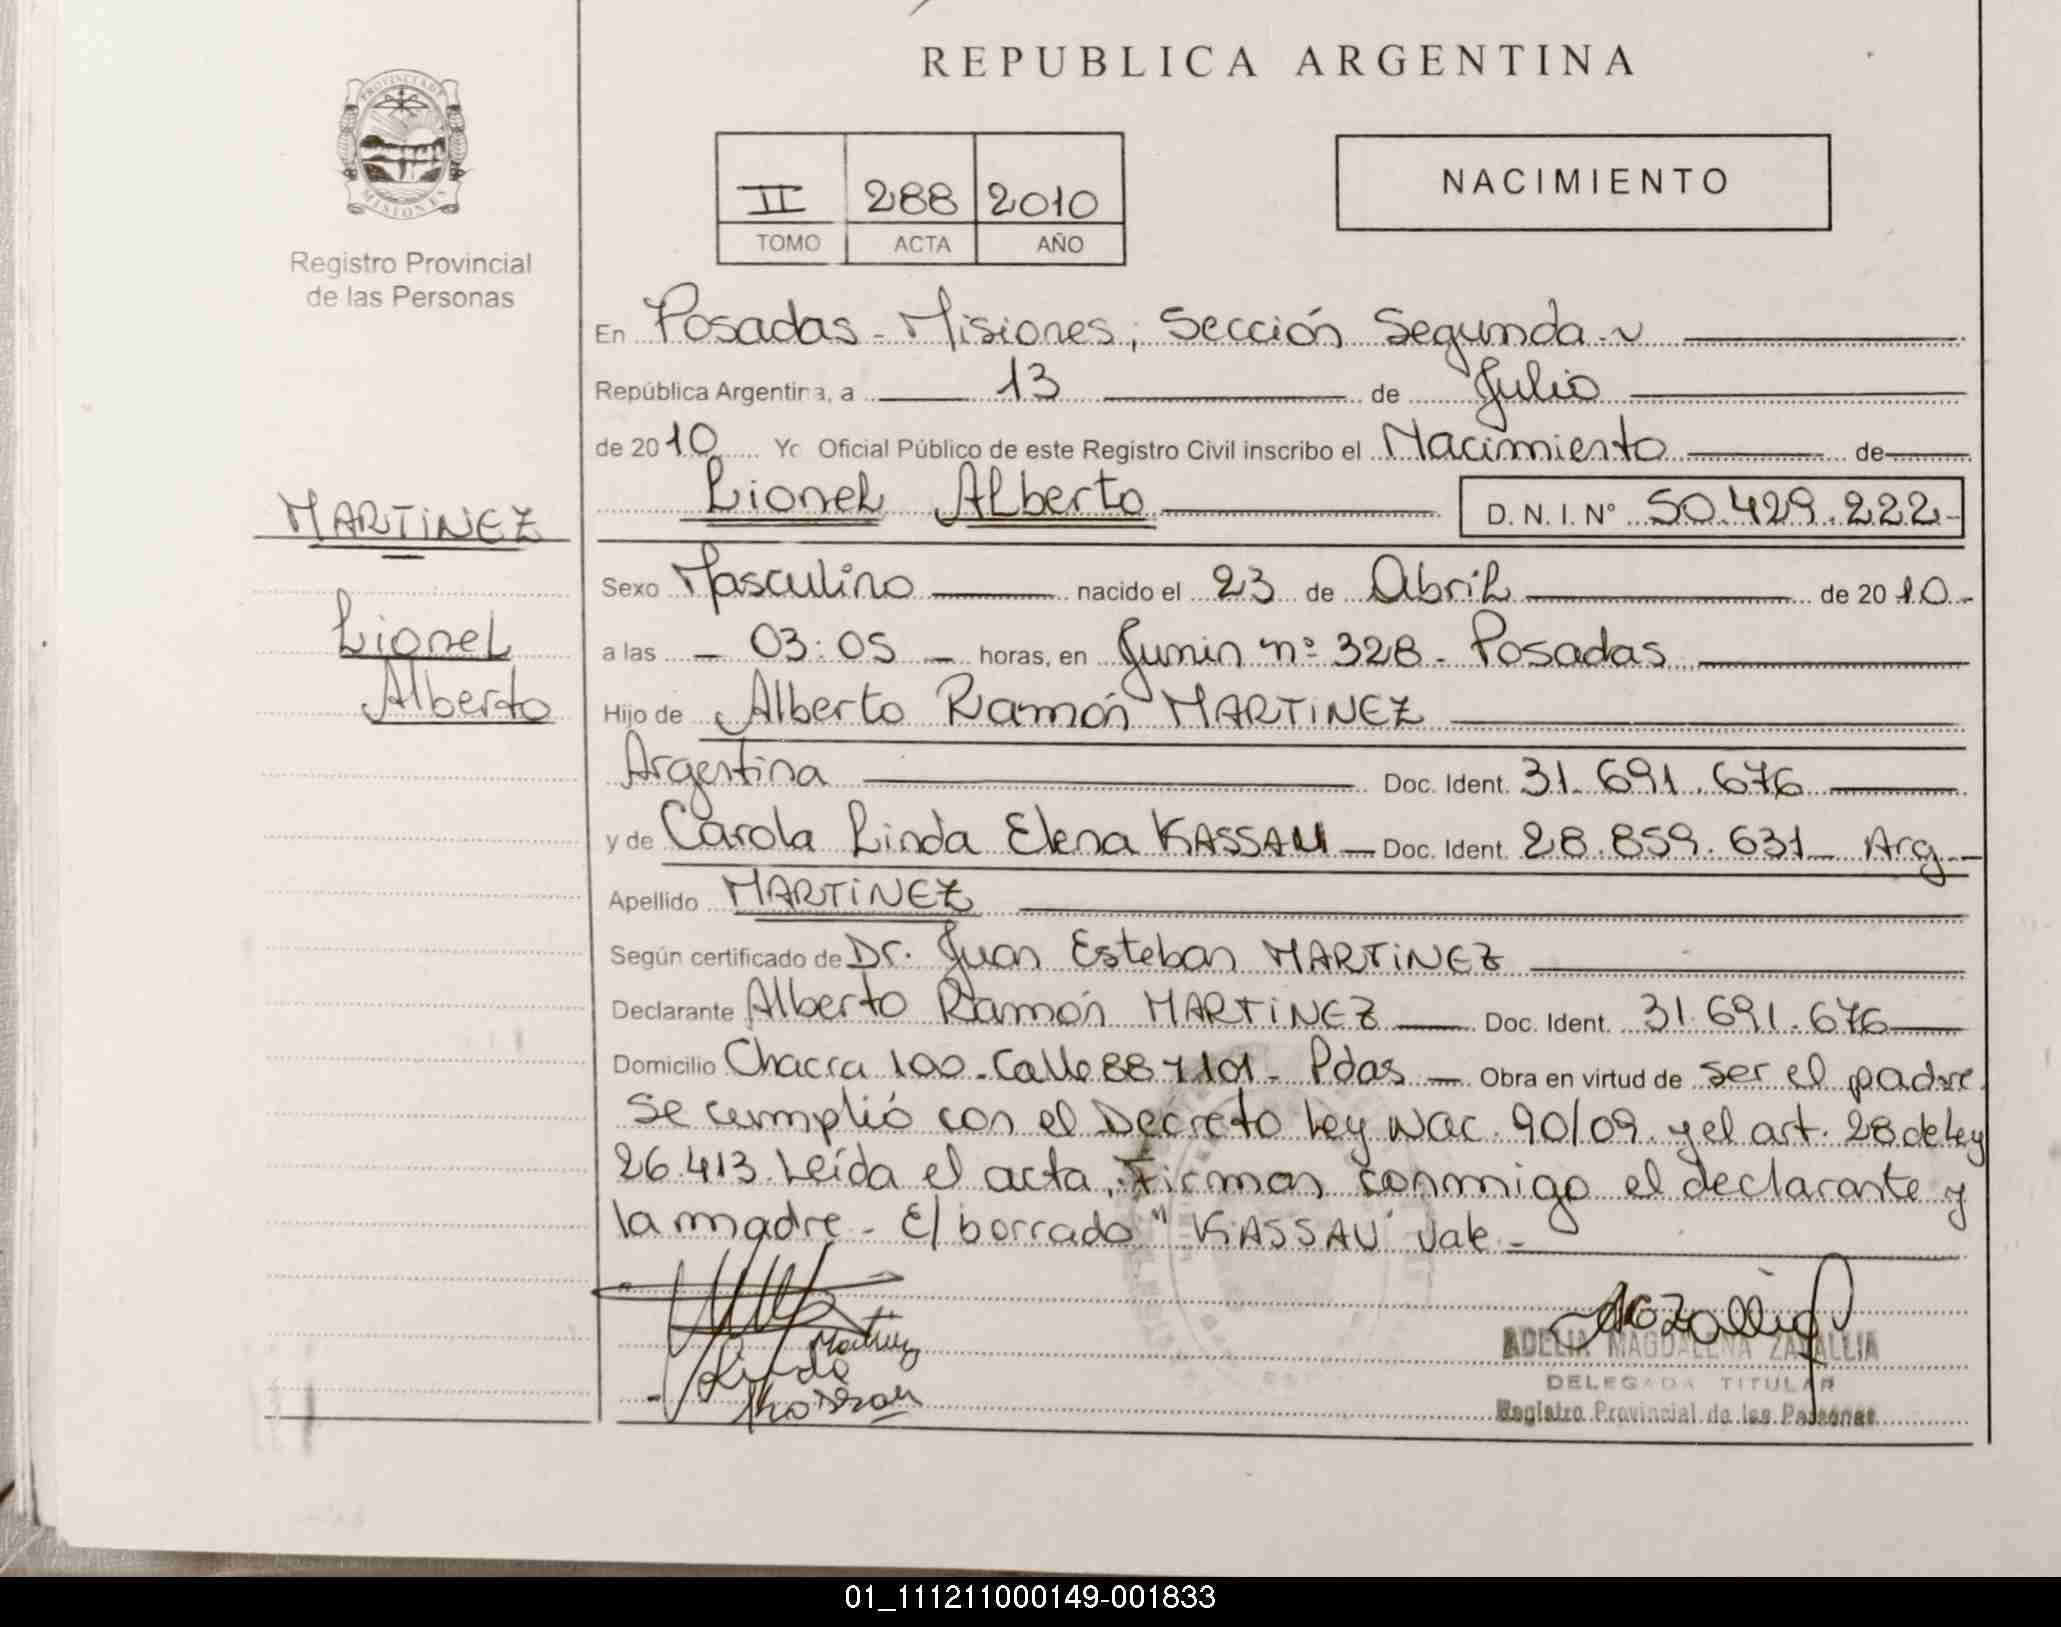 REPUBLICA ARGENTINA
PROVINCIA DE
MISIONES
Registro Provincial
de las Personas
II 288 2010
TOMO ACTA AÑO
NACIMIENTO
En Posadas - Misiones, Sección Segunda
República Argentina, a 13 de Julio
de 2010 Yo Oficial Público de este Registro Civil inscribo el Nacimiento de
Lionel Alberto D.N.I. Nº 50.429.222-
MARTINEZ
Lionel
Alberto
Sexo Masculino nacido el 23 de Abril de 2010-
a las - 03:05 - horas, en Junin nº 328 - Posadas
Hijo de Alberto Ramón MARTINEZ
Argentina Doc. Ident. 31.691.676
y de Carola Linda Elena KASSAU Doc. Ident. 28.859.631 Arg.-
Apellido MARTINEZ
Según certificado de Dr. Juan Esteban MARTINEZ
Declarante Alberto Ramón MARTINEZ Doc. Ident. 31.691.676
Domicilio Chacra 100 - Calle 88 y 101 - Pdas Obra en virtud de ser el padre.
Se cumplió con el Decreto Ley Nac. 90/09 y el art. 28 de Ley
26.413. Leída el acta, Firman conmigo el declarante y
la madre - E/ borrado "KASSAU" vale -
Martinez
Linda
Kassau
ADELIA MAGDALENA ZAPALLIA
DELEGADA TITULAR
Registro Provincial de las Personas
01_111211000149-001833